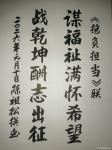 《抱负担当》联
谋福祉满怀希望
战乾坤酬志出征
二〇二六年元月十日陈祖松撰书